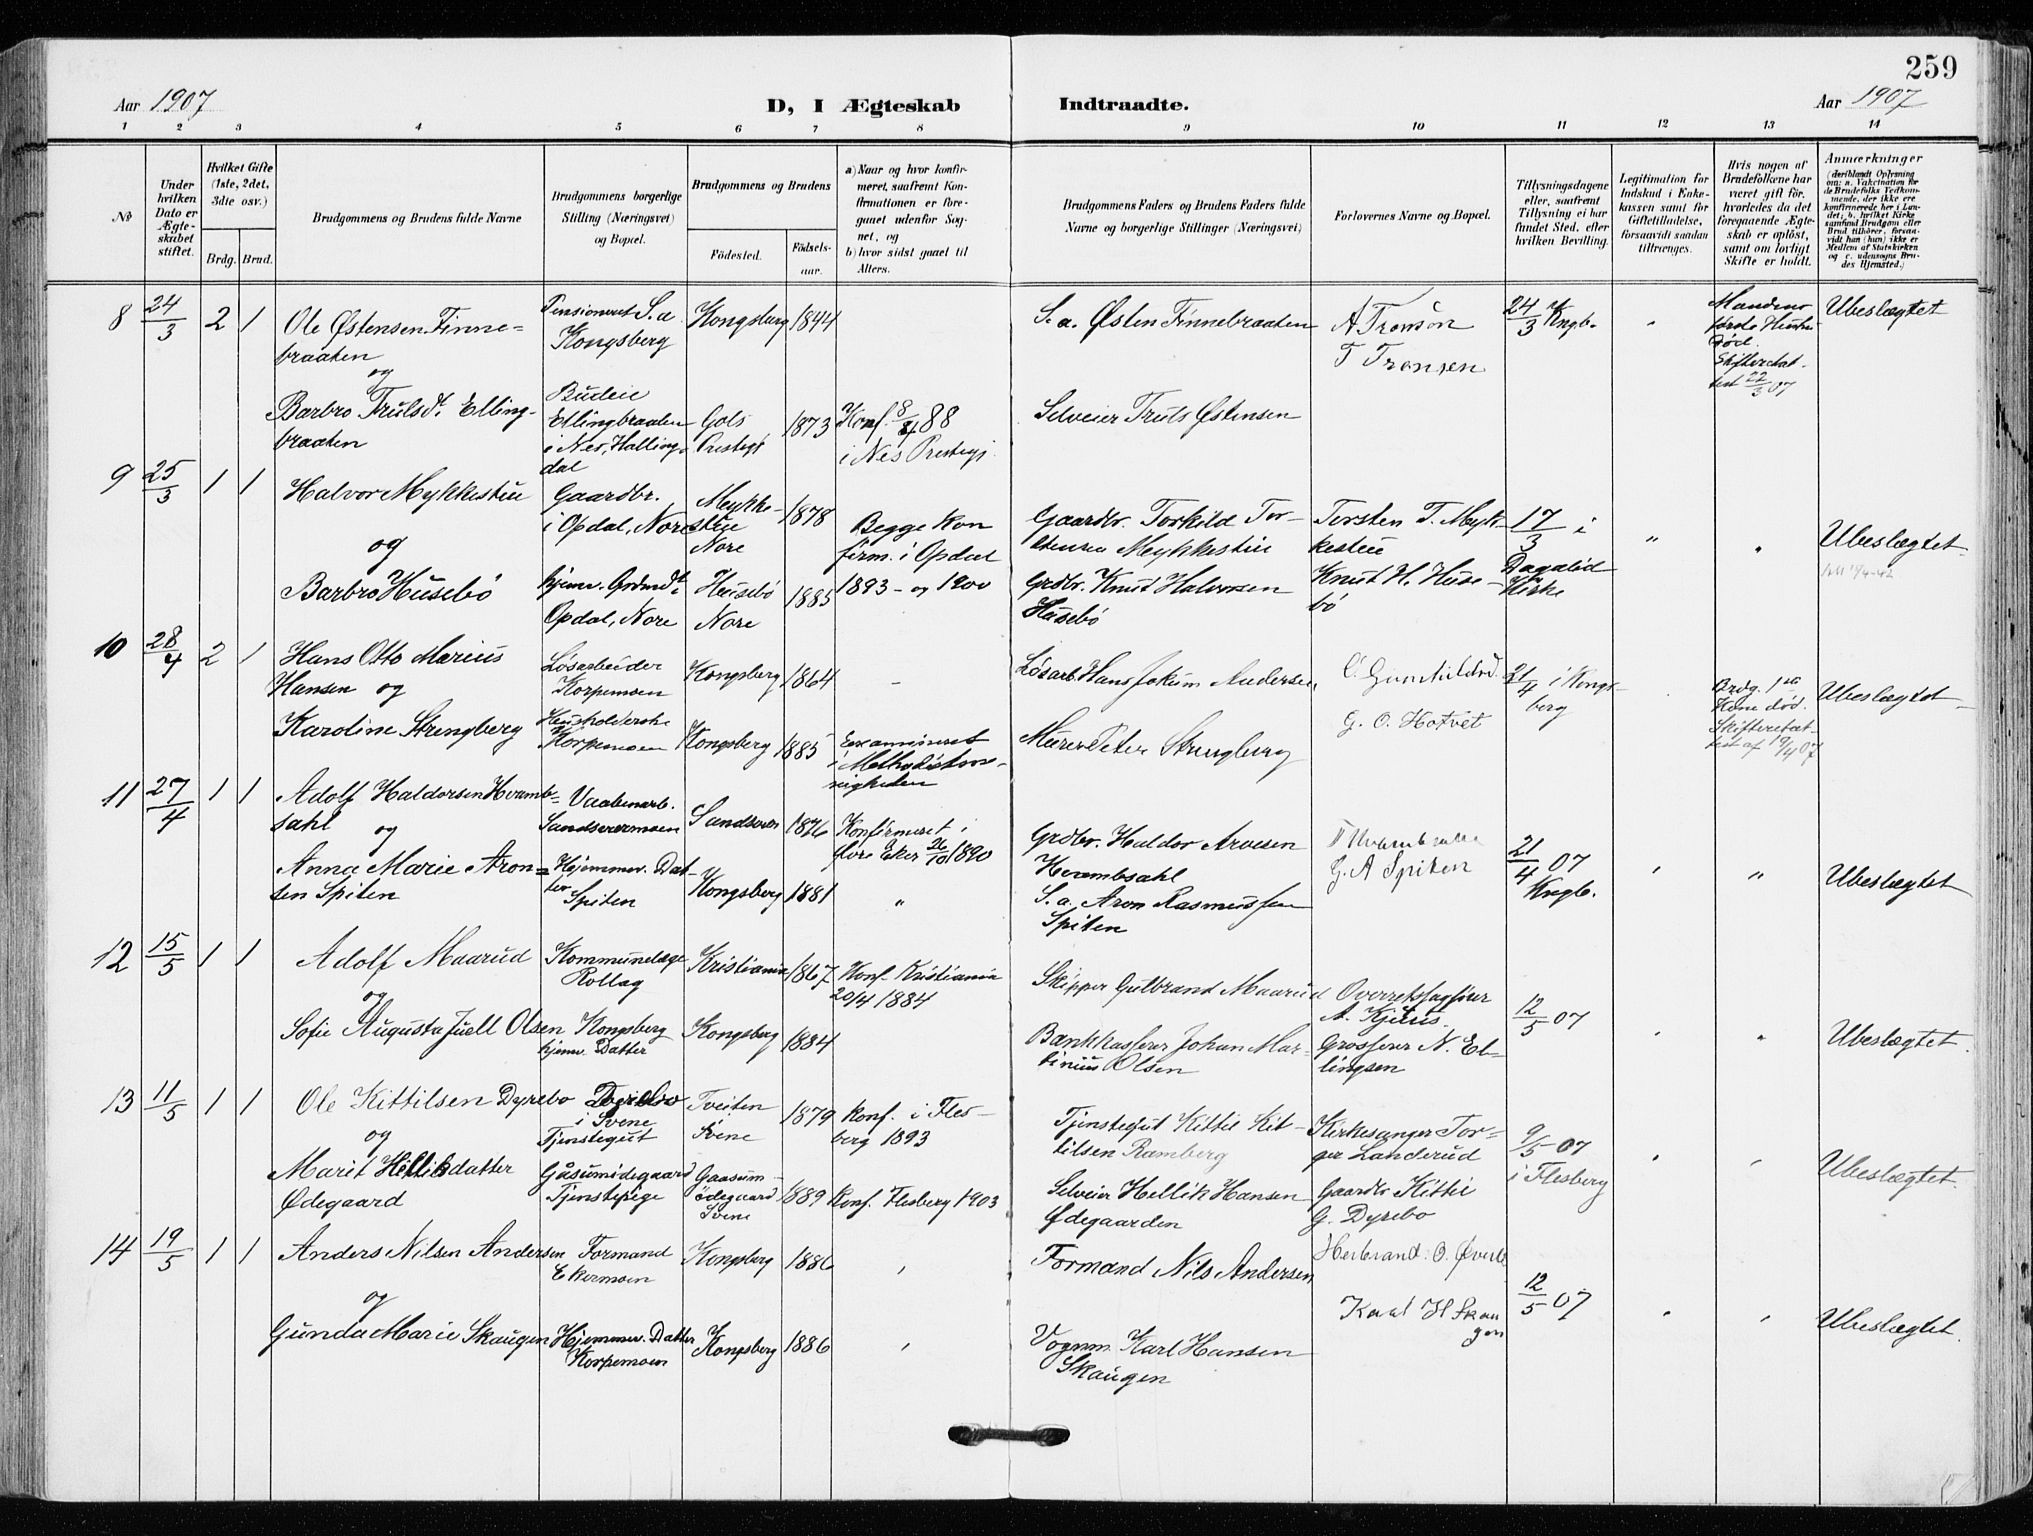 259
Aar 1907 D, I Ægteskab Indtraadte. Aar 1907
1 2 3 4 5 6 7 8 9 10 11 12 13 14
No
Under hvilken Dato er Ægteskabet stiftet.
Hvilket Gifte (1ste, 2det, 3die osv.)
Brdg. Brud.
Brudgommens og Brudens fulde Navne
Brudgommens borgerlige Stilling (Næringsvei) og Bopæl.
Brudgommens og Brudens
Fødested. Fødsels-aar.
a) Naar og hvor konfirmeret, saafremt Konfirmationen er foregaaet udenfor Sognet, og
b) hvor sidst gaaet til Alters.
Brudgommens Faders og Brudens Faders fulde Navne og borgerlige Stillinger (Næringsvei)
Forlovernes Navne og Bopæl.
Tillysningsdagene eller, saafremt Tillysning ei har fundet Sted, efter hvilken Bevilling.
Legitimation for Indskud i Enkekassen samt for Giftetilladelse, forsaavidt saadan tiltrænges.
Hvis nogen af Brudefolkene har været gift før, hvorledes da det foregaaende Ægteskab er opløst, samt om lovligt Skifte er holdt.
Anmærkninger (deriblandt Oplysning om: a. Vakcination for de Brudefolks Vedkommende, der ikke ere konfirmerede her i Landet; b. hvilket Kirkesamfund Brudgom eller Brud tilhører, forsaavidt han (hun) ikke er Medlem af Statskirken og c. udensogns Brudes Hjemsted.)
8 24/3 2 1
Ole Østensen Finne=
braaten
og
Barbro Trulsdt. Elling-
braaten
Pensioneret S.a.
Kongsberg
Budeie
Ellingbraaten
i Nes, Halling-
dal
Kongsberg 1844
Gols
Prestegj. 1873
Konf. 8/4 88
i Nes Prestegj.
S. a. Østen Finnebraaten
Selveier Truls Østensen
A Tronson
T Tronsen
24/3 Kngb.
"
Mandens
første Hustru
død.
Skifteretsat-
test 22/3 07
Ubeslægtet
9 25/3 1 1
Halvor Mykkestue
og
Barbro Husebø
Gaardbr.
i Opdal, Nore
hjemv. Grdmdt. i
Opdal, Nore
Mykke-
stue
Nore 1878
Husebø
Nore 1885
Begge kon
firm. i Opdal
1893 - og 1900
Gaardbr. Torkild Tor-
stensen Mykkestue
Grdbr. Knut Halvorsen
Husebø
Torsten T. Myk-
kestue
Knut H. Huse-
bø
17/3 i
Dagalid
Kirke
" "
Ubeslægtet
10 28/4 2 1
Hans Otto Marius
Hansen og
Karoline Strengberg
Løsarbeider
Korpemoen
Husholderske
Korpemoen
Kongsberg 1864
Kongsberg 1885
-
Examineret
i Methodistme-
nigheden
Løsarb. Hans Jokum Andersen,
Murer Peter Strengberg
G. O. Hofvet
21/4 i Kongs-
berg
Brdg. 1ste
Kone død.
Skifteretsat-
test af 19/4 07
Ubeslægtet
11 27/4 1 1
Adolf Haldorsen Hvamb=
sahl og
Anna Marie Aron=
sen Spiten
Vaabenarb.
Sandsværmoen
Hjemmev. Dat-
ter
Spiten
Sandsvær 1876
Kongsberg 1881
Konfirmeret i
Øvre Eker 26/10 1890
"
Grdbr. Haldor Arvesen
Hvambsahl
S. a. Aron Rasmussen
Spiten
G. A Spiten
21/4 07
Kngb.
" "
Ubeslægtet
12 15/5 1 1
Adolf Maarud
og
Sofie Augusta Juell Olsen
Kommunelæge
Rollag
Kongsberg
hjemv. Datter
Kristiania 1867
Kongsberg 1884
Konf. Kristiania
20/4 1884
Skipper Gulbrand Maarud
Bankkasserer Johan Mar-
tinius Olsen
Overretssagfører
A. Kjerus
Grosserer N. El-
lingsen
12/5 07
" "
Ubeslægtet.
13 11/5 1 1
Ole Kittilsen Dyrebo
og
Marit Helliksdatter
Ødegaard
Dyrebo
i Svene
Tjenstegut
Gåsumødegaard
Tjenstepige
Tveiten
Svene 1879
Gaasum-
ødegaard
Svene 1889
konf. i Fles-
berg 1893
Konf. Flesberg 1903
Tjenstegut Kittil Kit-
tilsen Ramberg
Selveier Hellik Hansen
Ødegaarden
Kirkesanger Tor-
ger Landerud
Gaardbr Kittil
G. Dyrebo
9/5 07
i Flesberg
" "
Ubeslægtet.
14 19/5 1 1
Anders Nilsen Andersen
og
Gunda Marie Skaugen
Formand
Ekermoen
Hjemmev. Datter
Korpemoen
Kongsberg 1886
Kongsberg 1886
" "
Formand Nils Andersen
Vognm. Karl Hansen
Skaugen
Herbrand. O. Øverb
Karl H Skau
gen
12/5 07
" "
Ubeslægtet.